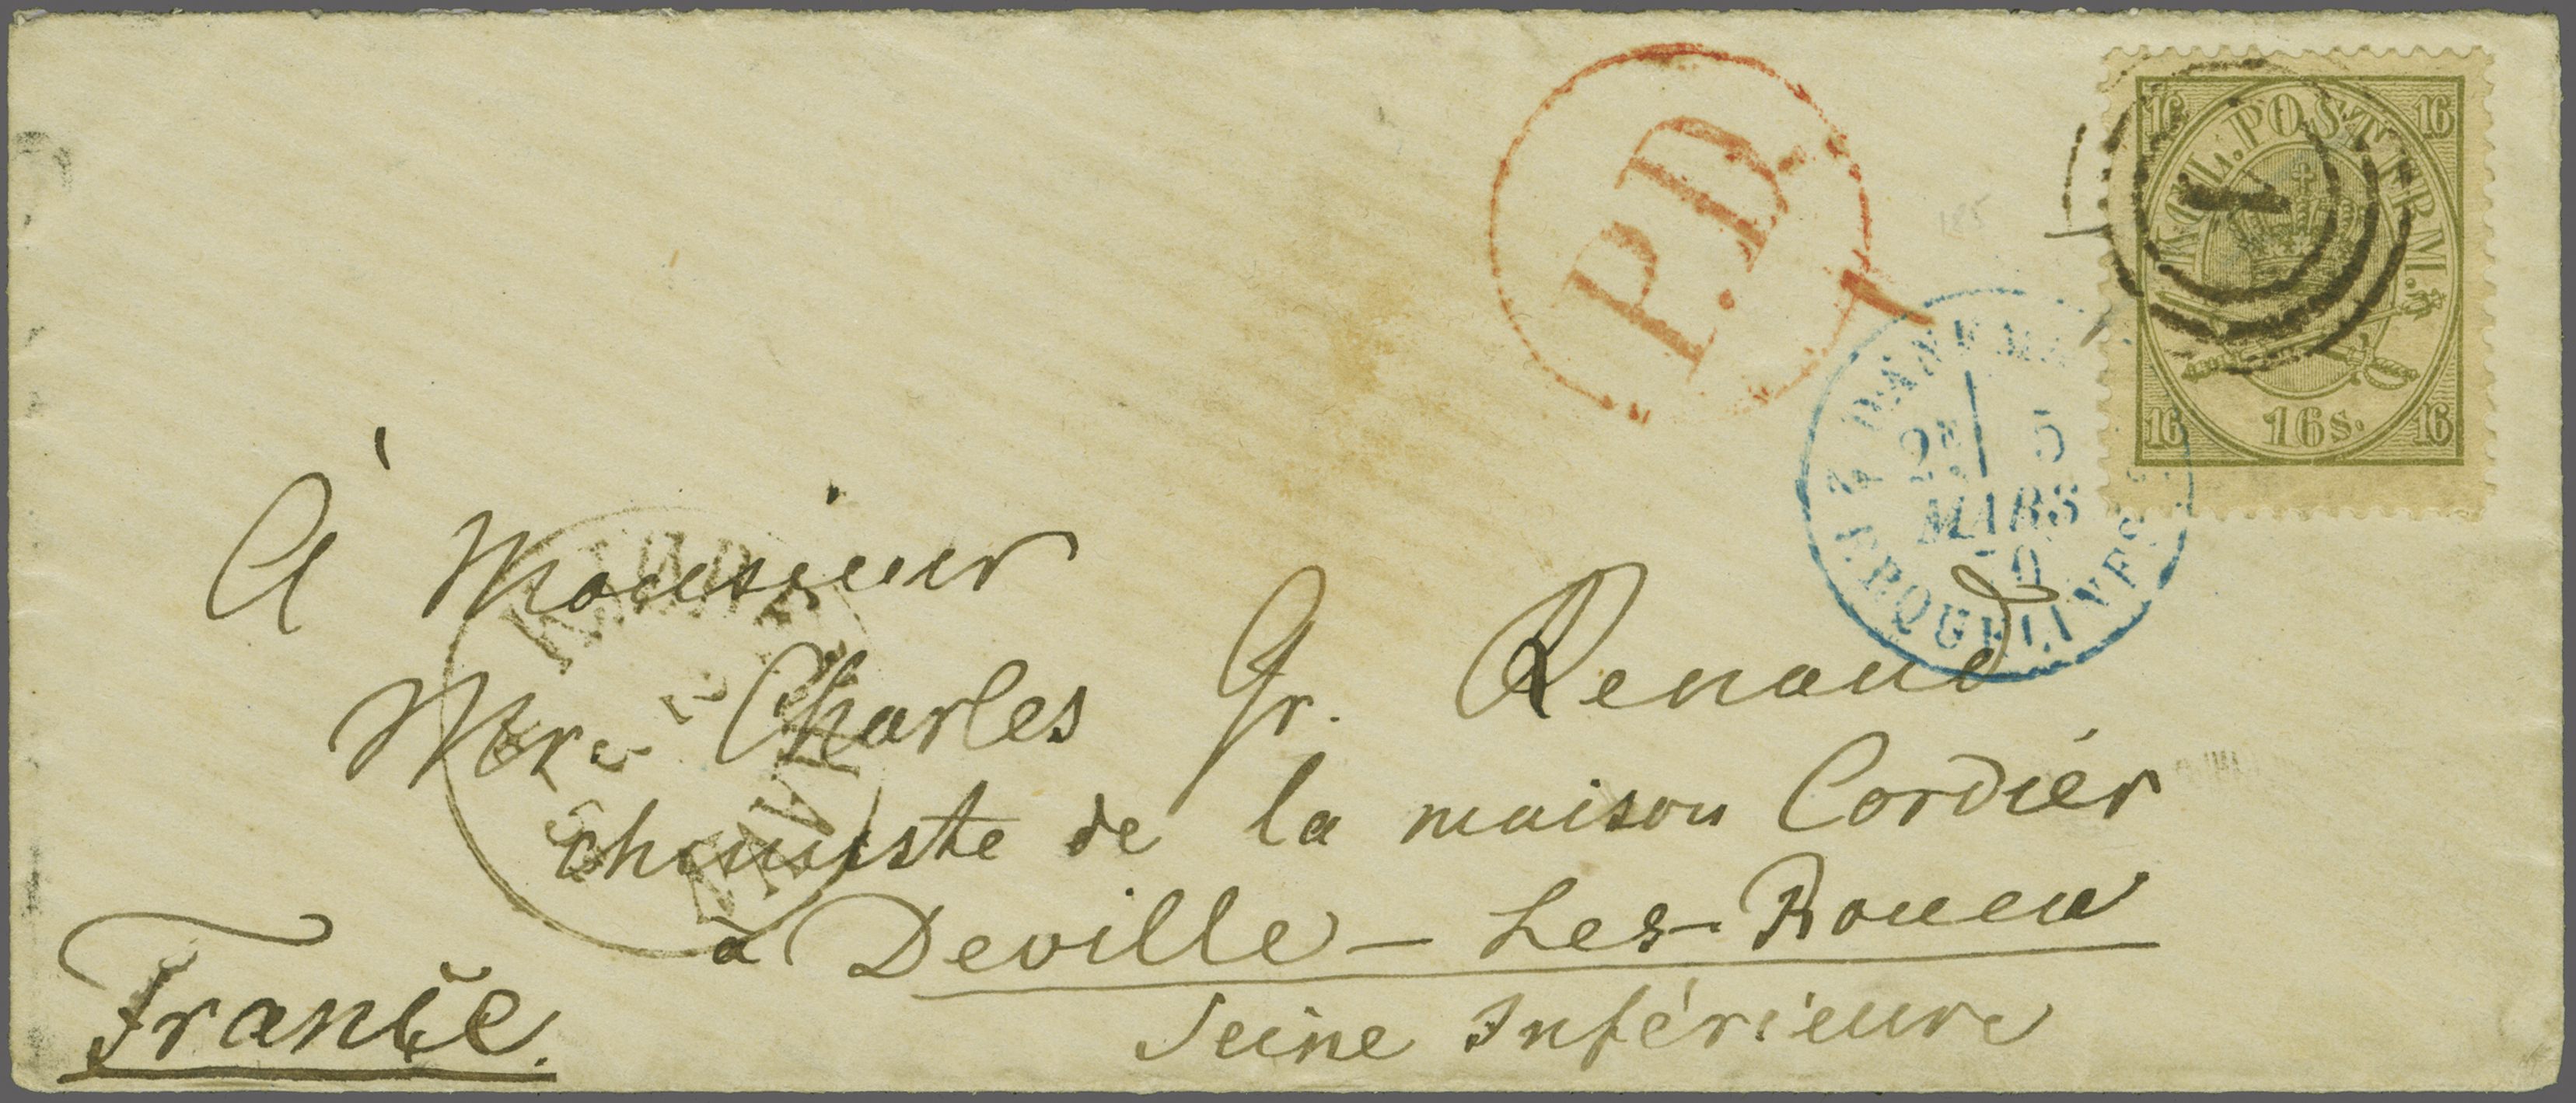 P.D.
16 16
KGL. POST FRM.
1
16 16
16 S.
2E 5
MARS
ERQUELINES
À Monsieur
Mr. Charles Gr. Renaud
chimiste de la maison Cordier
à Deville-Les-Rouen
Seine Inférieure
France.